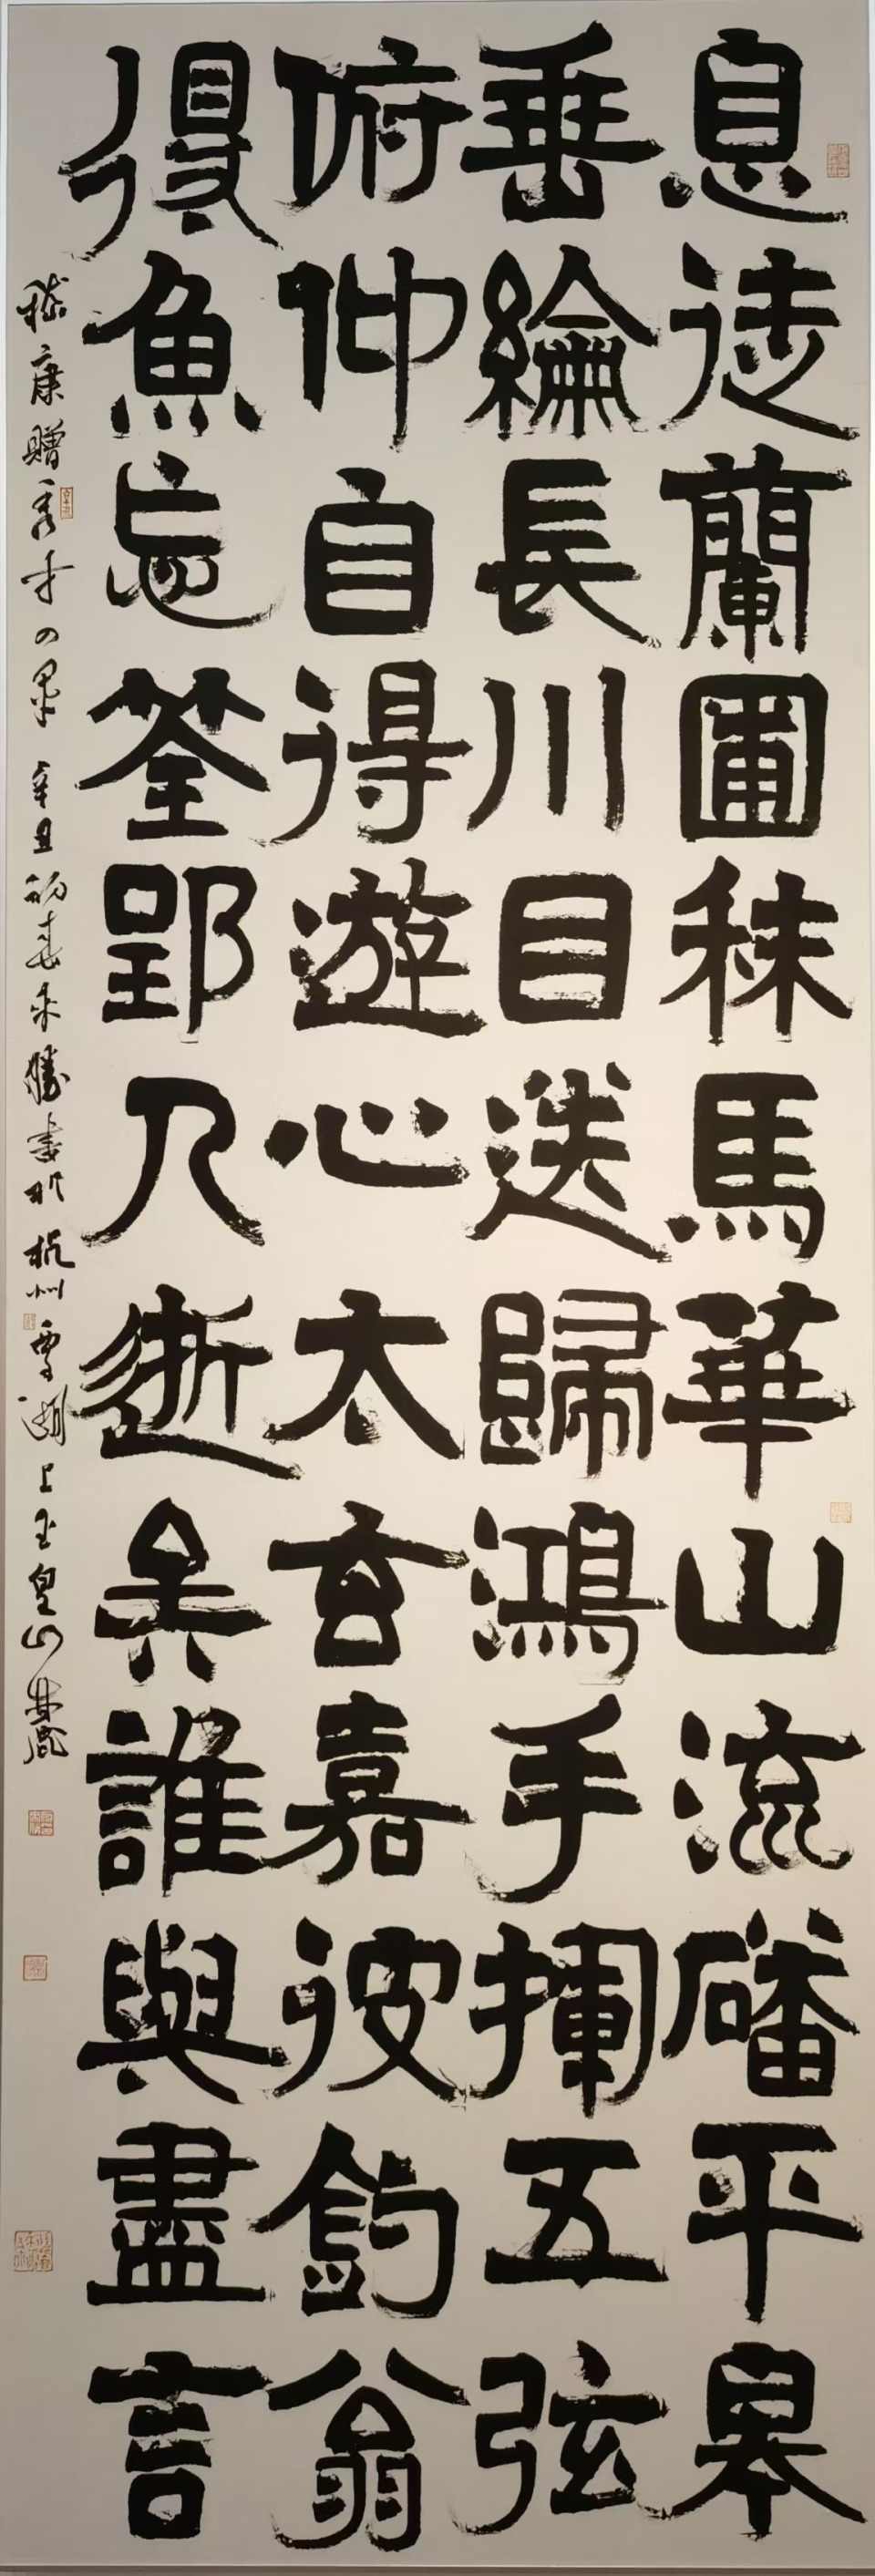 息徒蘭圃秣馬華山流磻平皋
垂綸長川目送歸鴻手揮五弦
俯仰自得遊心太玄嘉彼釣翁
得魚忘筌郢人逝矣誰與盡言
嵇康贈秀才四章 辛丑初春來勝書於杭州西湖上玉皇山麓